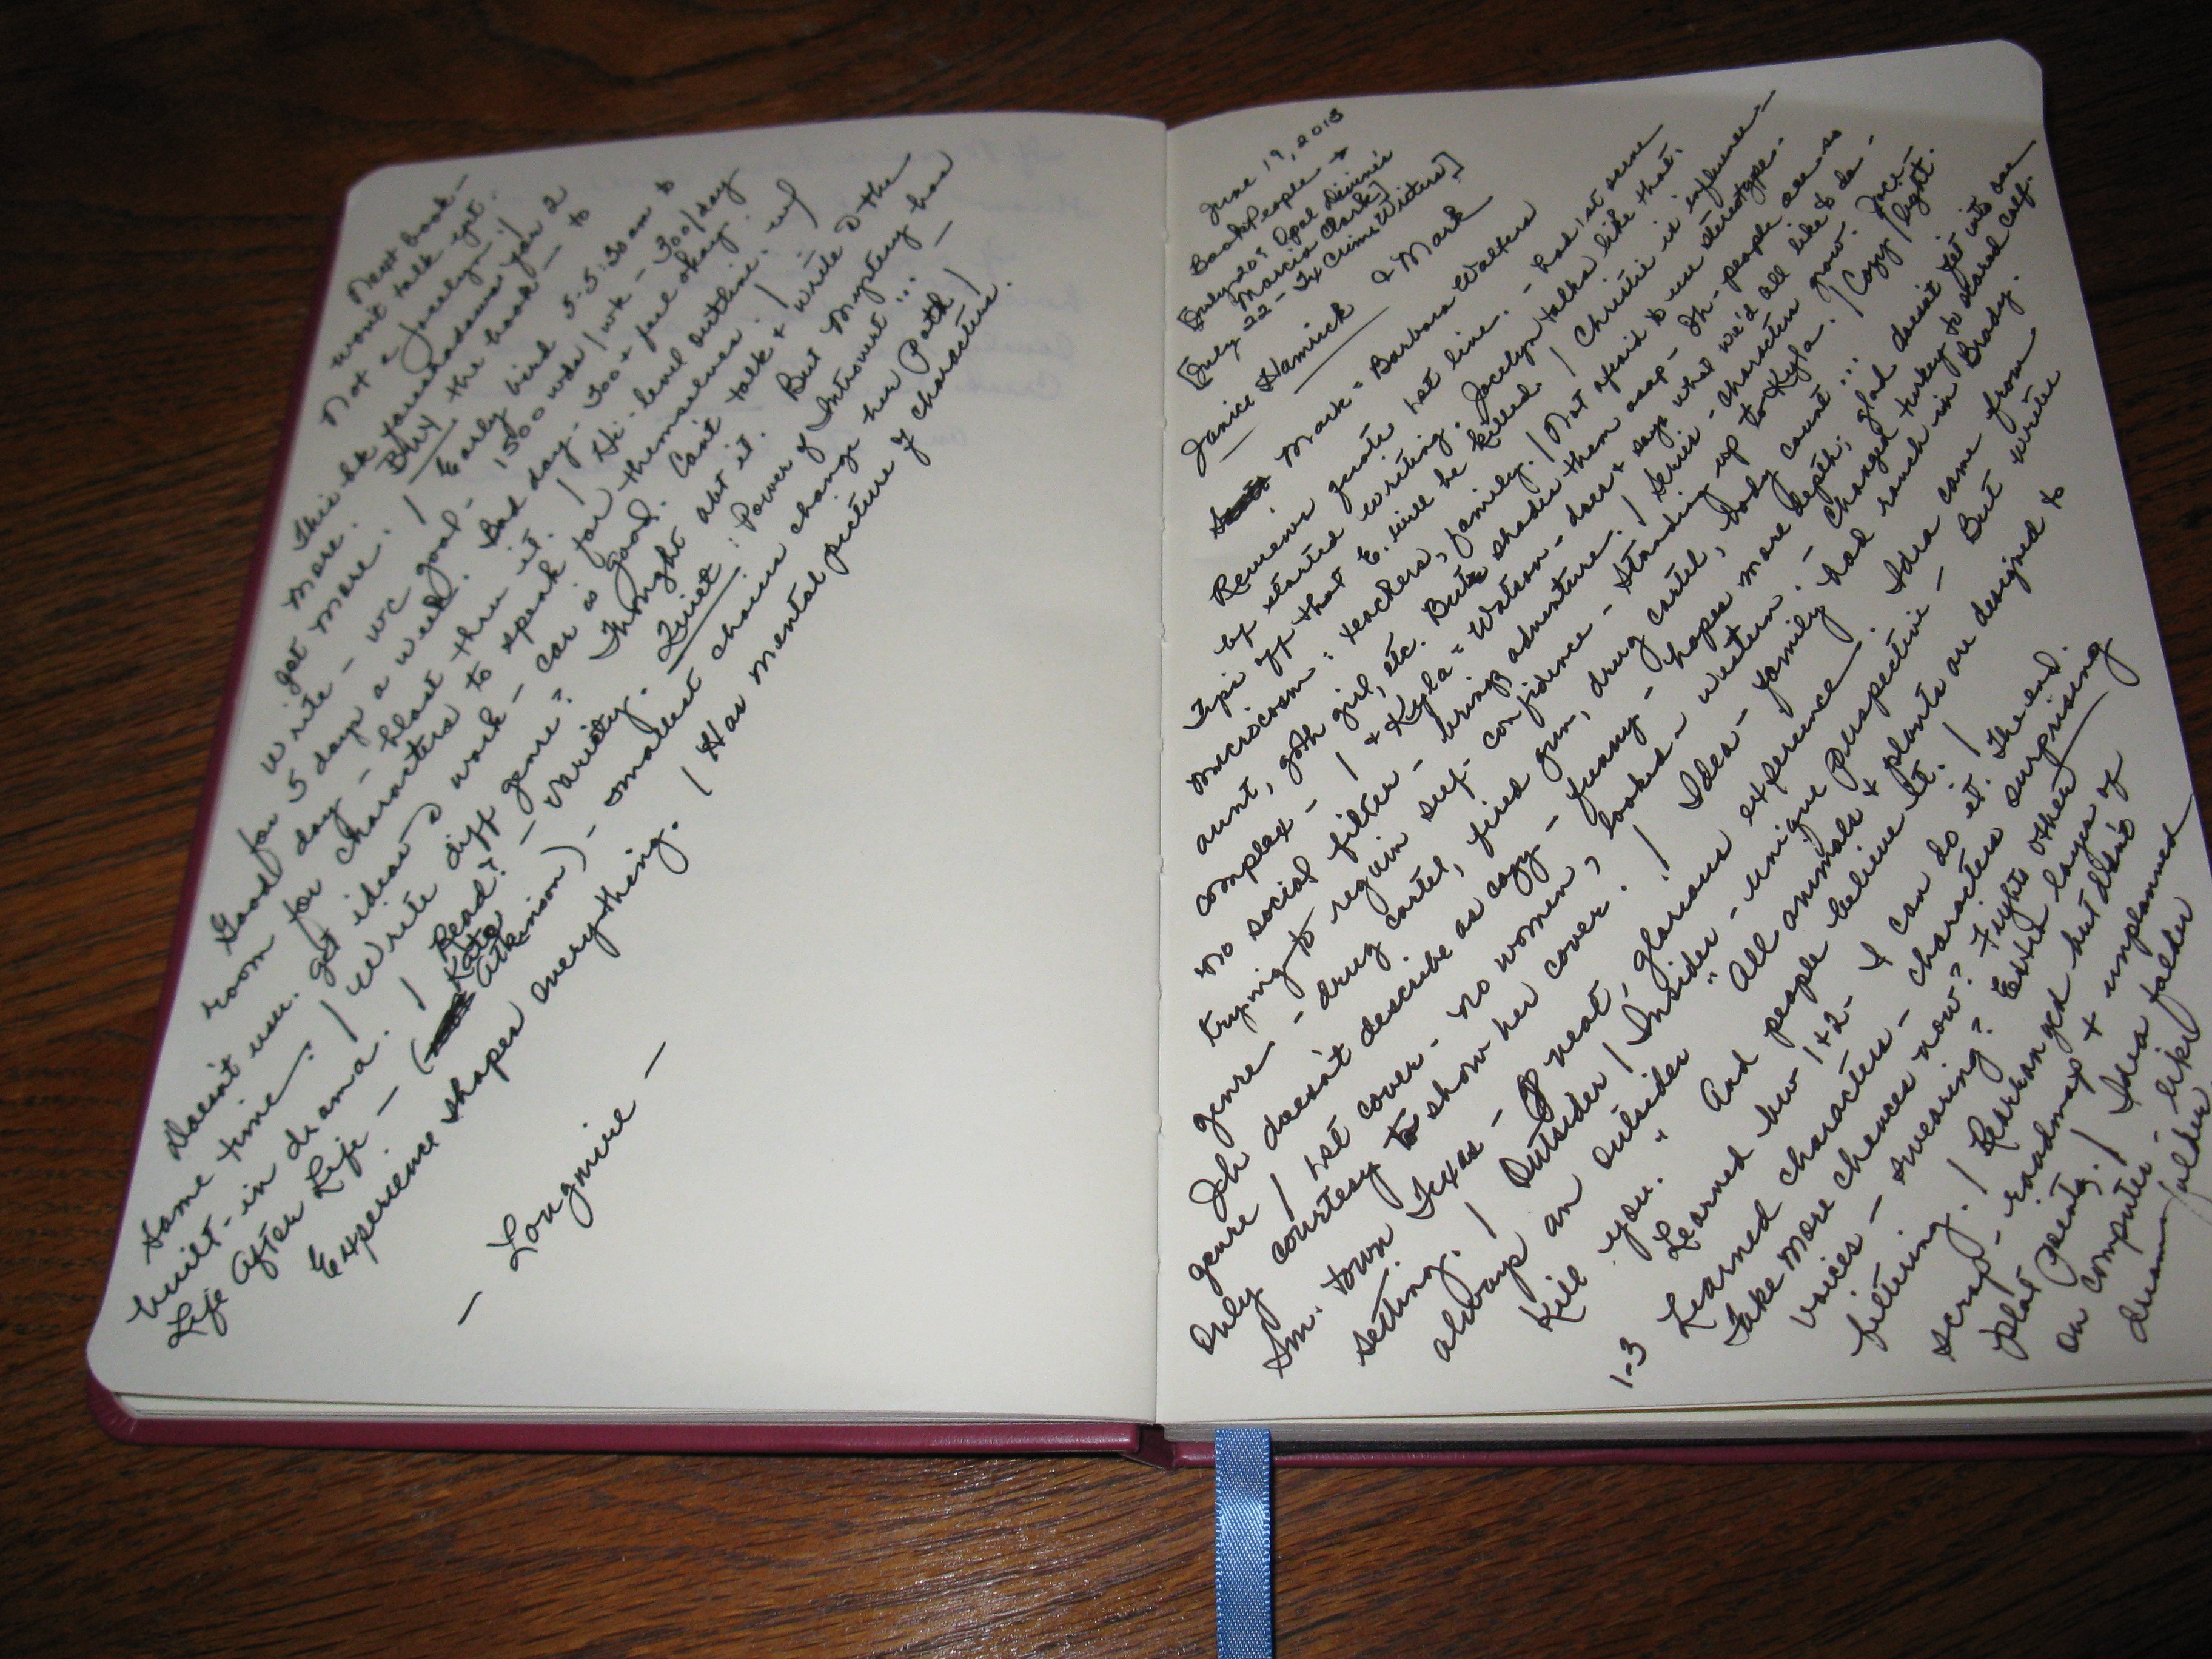 Next book -
won't talk yet.
Not a Jocelyn. !
This bk foreshadows you 2
more. Buy the book - to
get more. / Early bird 5-5:30am to
write - wc goal - 1500 wds/wk - 300/day
for 5 days a week. Bad day - 300 + feel okay.
Good day - blast thru it. / Hi-level outline. w/
room for characters to speak for themselves. /
Doesn't use. get ideas @ work - car is good. Can't talk + write @ the
same time. / Write diff genre? Thought abt it. But mystery has
built-in drama. / Read? - variety. Quiet: Power of Introvert...
Life After Life - (Kate Atkinson) - smallest choices change her path /
Experience shapes everything. / Has mental picture of characters.
- Longmire -
June 19, 2013
BookPeople →
[July 20: Opal Devine's
Marcia Clark]
[July 22 - Tx Crime Writers]
Janice Hamrick & Mark
Mark = Barbara Walters
Reviews quote 1st line. - had 1st scene
by started writing. Jocelyn talks like that.
Tips off that E. will be killed. / Christie is influence -
microcosm: teachers, family. / Not afraid to use stereotype.
aunt, goth girl, etc. But shades them asap - Jh - people are so
complex - / + Kyla = Watson - does + says what we'd all like to do -
no social filter - brings adventure. / Series - characters grow. Joce -
trying to regain self-confidence - standing up to Kyla. / Cozy/light.
genre - drug cartel, fired gun, drug cartel, body count ...
Jh doesn't describe as cozy - funny - hopes more depth; glad doesn't fit into one
genre / 1st cover - no women, looked western. - Changed turkey to scared calf.
Only courtesy to show her cover. / Idea - family had ranch in Brady.
Sm. town Texas - neat, glorious experience. Idea came from
setting. / Outsider / Insider - unique perspective - But write
always an outsider " All animals + plants are designed to
Kill you. " And people believe it. /
Learned how 1+2 - I can do it. The end.
1-3 Learned characters - characters surprising
Take more chances now? Fights other
voices - swearing? Extra layer of
filtering. / Rearranged but didn't
scrap - roadmap + unplanned
plot points. / Idea folder
on computer - like
dream folder